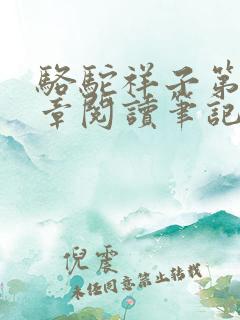 駱駝祥子第
章閱讀筆記
倪震
未任同意禁止轉載